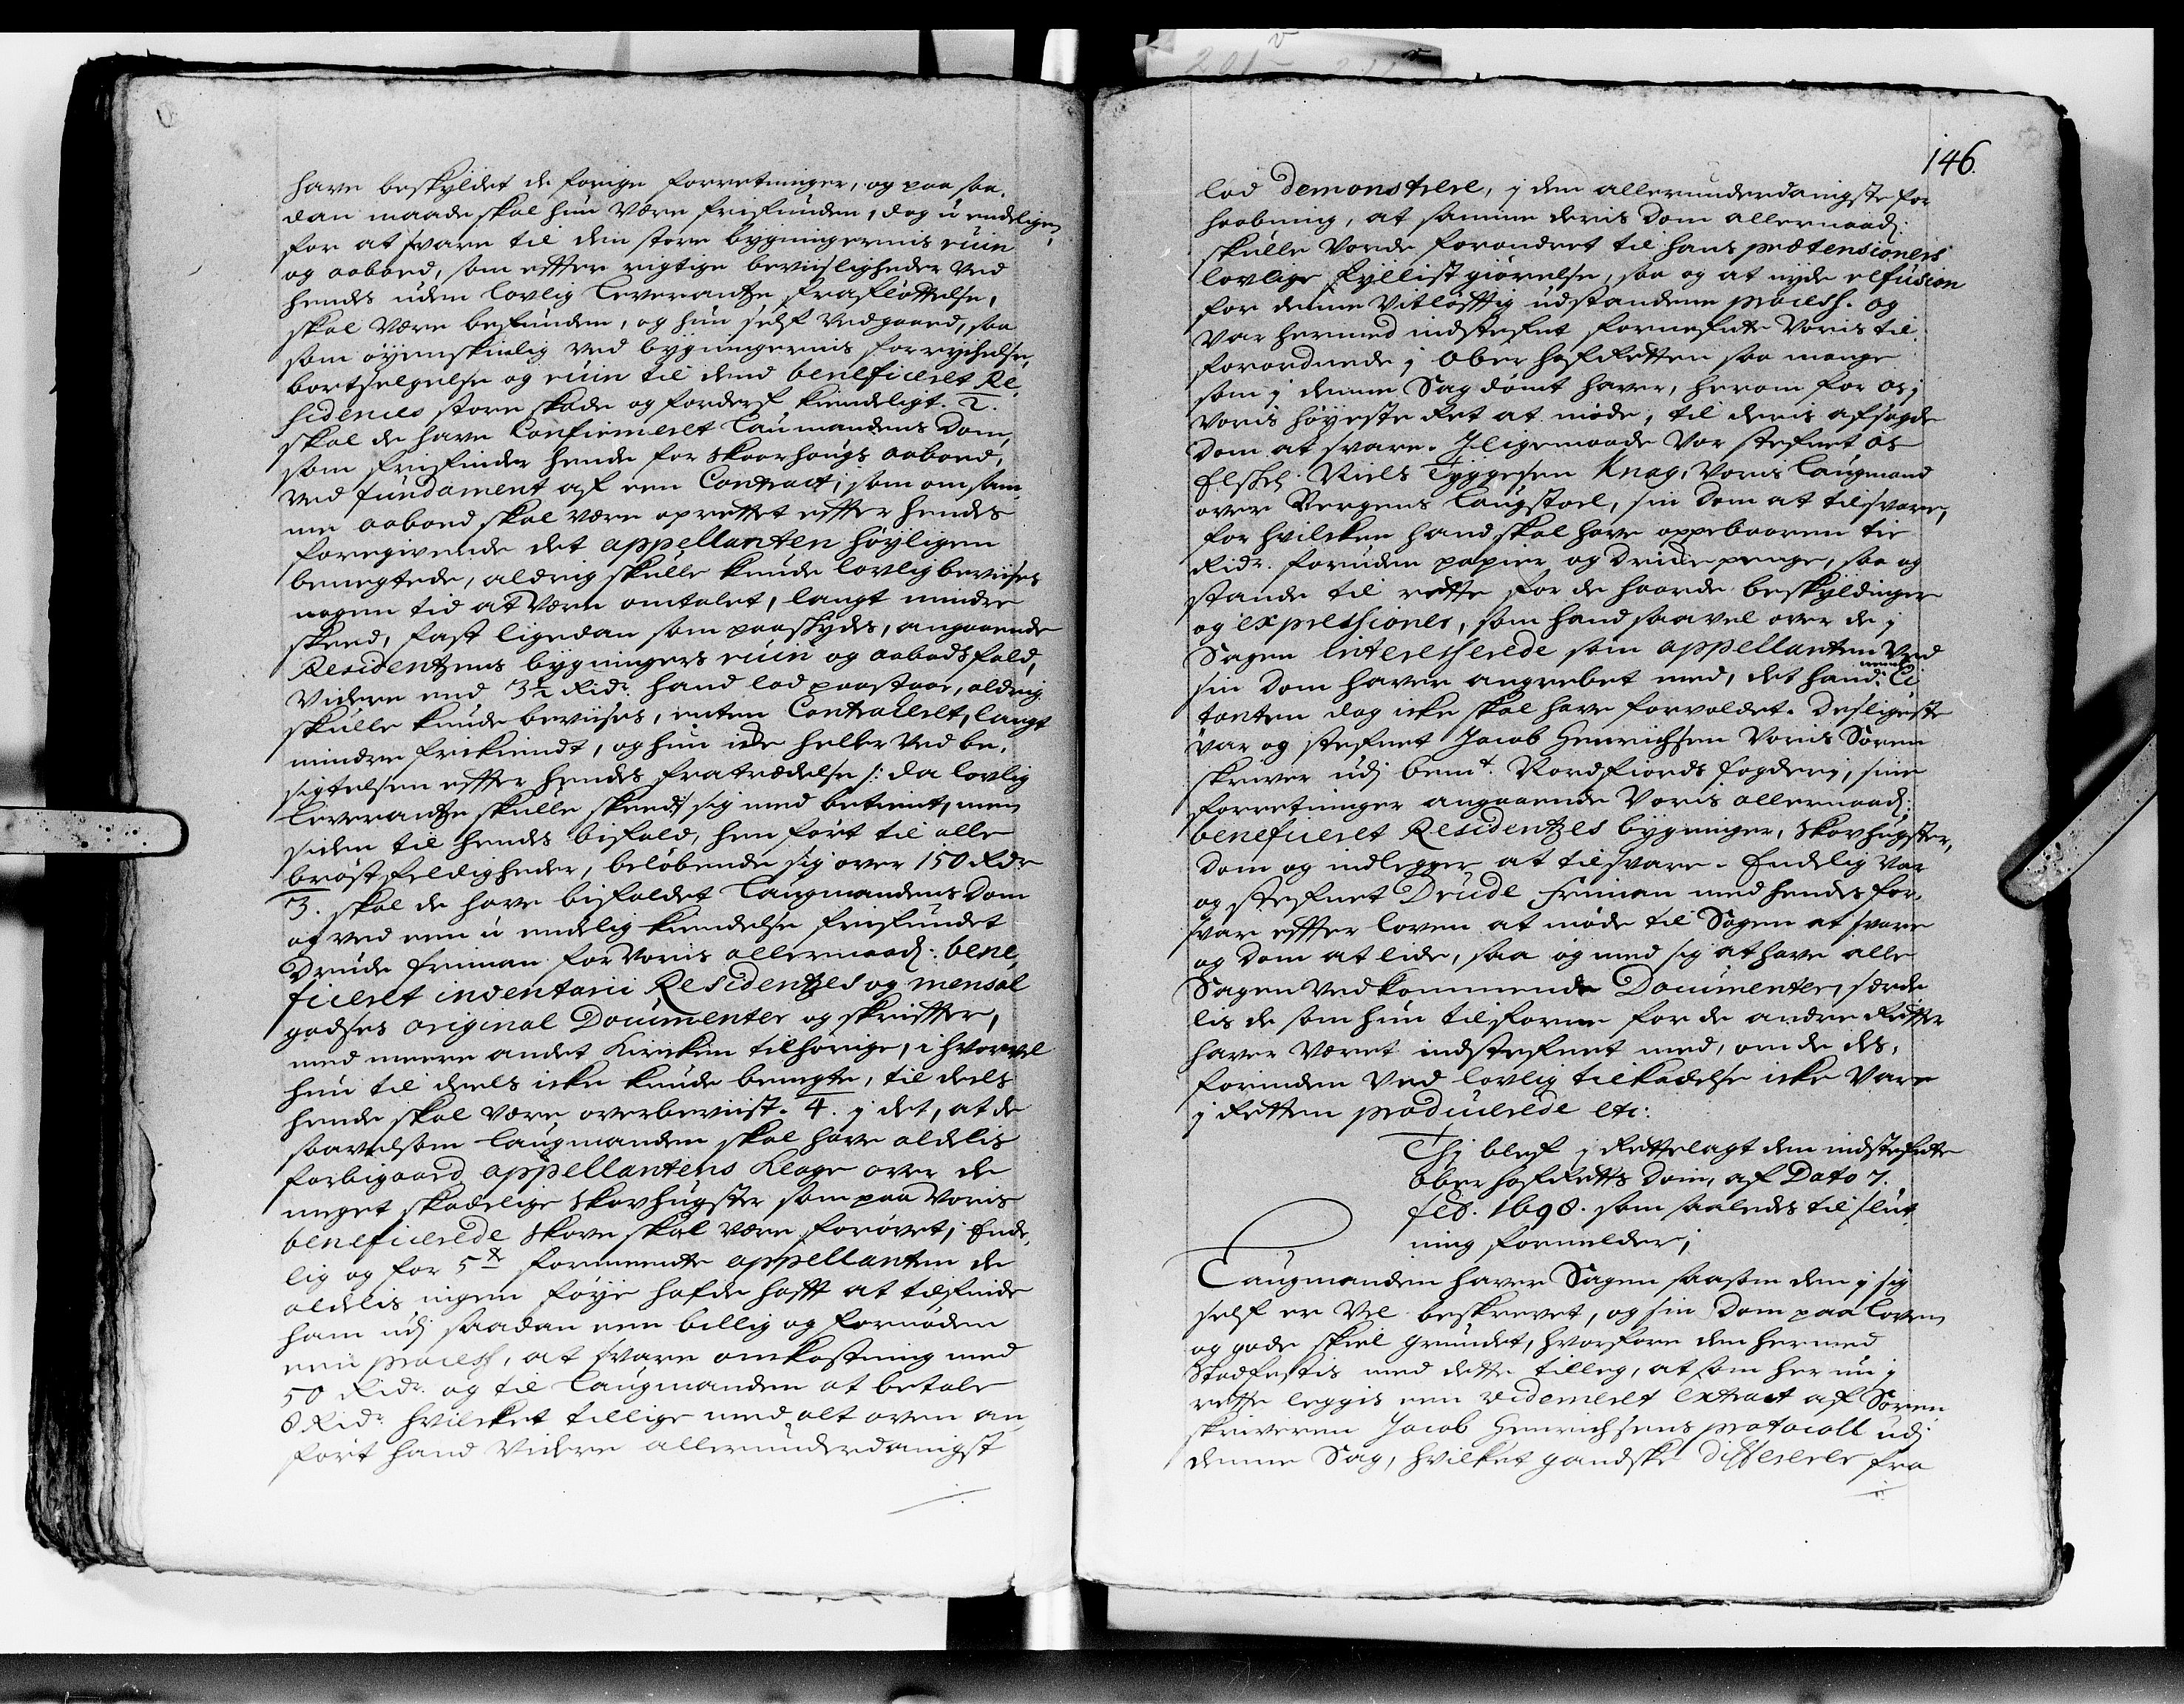 have beskyldet de forige forretninger, og paa saa,
dan maade skal hun være frifunden, dog u endeligen
for at svare til den store bygningernis ruin
og aabood, som effter rigtige beviisligheder ved
hendes uden lovlig leverantze fraflöttelse,
skal være befunden, og hun self vedgaaed, saa
som öyenskinlig ved bygningernis forryckelse,
bortselgelse og ruin til dend beneficeret Re,
sidences store skade og forderf kiendeligt. 2.
skal de have Confirmeret Laumandens Dom,
som frifinder hende for Skaarhougs aabood,
ved fundament af een Contract, som om sam,
me aabood skal være oprettet effter hendes
foregivende det appellanten höyligen
benegtede, aldrig skulle kunde lovlig beviises
nogen tid at være omtalet, langt mindre
skeed, fast ligedan som paaskydes, angaaende
Residentzens bygningers ruin og aabodsfald,
Videre end 3½ Rdr. hand lod paastaae, aldrig
skulle kunde beviises, enten Contraheret, langt
mindre frikiendt, og hun icke heller ved be,
sigtelsen effter hendes fratrædelse /: da lovlig
leverantze skulle skeed :/ sig med betient, men
siden til hendes bifald, hen fört til alle
bröstfeldigheder, belöbende sig over 150 Rdr
3. skal de have bifaldet Laugmandens Dom
og ved een u endelig kiendelse frifundet
Drude Friman for Voris allernaad: bene,
ficeret inventarii Residentzes og mensal
godses original Documenter og skriffter,
med meere andet Kircken tilhörige, i hvorvel
hun til deels icke kunde benegte, til deels
hende skal være overbeviist. 4. j det, at de
saavelsom Laugmanden skal have aldelis
forbigaaed appellantens Klage over de
meget skadelige Skovhugster som paa Voris
beneficerede Skove skal være forövet; Ende,
lig og for 5te formeente appellanten de
aldelis ingen föye hafde hafft at tilfinde
ham udj saadan een billig og fornöden
een process, at svare omkostning med
50 Rdr. og til Laugmanden at betale
8 Rdr. hvilcket tillige med alt oven an,
fört hand videre allerunderdanigst
146.
lod demonstrere, j den allerunderdanigste for
haabning, at samme deris Dom allernaad:
skulle vorde forandret til hans prætensioners
lovlige fyllistgiörelse, saa og at nyde refusion
for denne vitlöfftig udstandene process. og
var hermed indstefnet fornefnte Voris til
forordnede j Oberhofretten saa mange
som j denne Sag dömt haver, herom for os j
Voris höyeste Ret at möde, til deris afsagde
Dom at svare. Jligemaade var stefnet os
Elskel: Niels Tyggesen Knag, Voris Laugmand
over Bergens Laugstoel, sin Dom at tilsvare,
for hvilcken hand skal have oppebaaren tie
Rdr. foruden papiir og Dricke penge, saa og
stande til rette for de haarde beskyldinger
og expressioner, som hand saavel over de j
Sagen interesserede som appellanten ved
sin Dom haver angrebet med, det hand neml: Ci
tanten dog icke skal have forvoldet. Desligeste
var og stefnet Jacob Henrichsen Voris Soren
skriver udj bemt. Nordfiords fogderi, sine
forretninger angaaende Voris allernaad:
beneficeret Residentzes bygninger, Skovhugster,
Dom og indlegger at tilsvare. Endelig var
og stefnet Drude Friman med hendes for,
svar effter loven at möde til Sagen at svare
og Dom at lide, saa og med sig at have alle
Sagen vedkommende Documenter, særde
lis de som hun tilforne for de andre Retter
haver været indstefnet med, om de des,
forinden ved lovlig tilkadelse icke vare
j Retten producerede etc:
Thj blef j Rettelagt den indstefnte
Oberhofrettis Dom, af Dato 7.
feb. 1698. som saaledes til slut
ning formelder;
Laugmanden haver Sagen saasom den j sig
self er vel beskrevet, og sin Dom paa loven
og gode skiel grundet, hvorfore den hermed
Stadfestis med dette tilleg, at som her nu j
rette leggis een videmeret extract af Soren
skriveren Jacob Henrichsens protocoll udj
denne Sag, hvilket gandske differerer fra